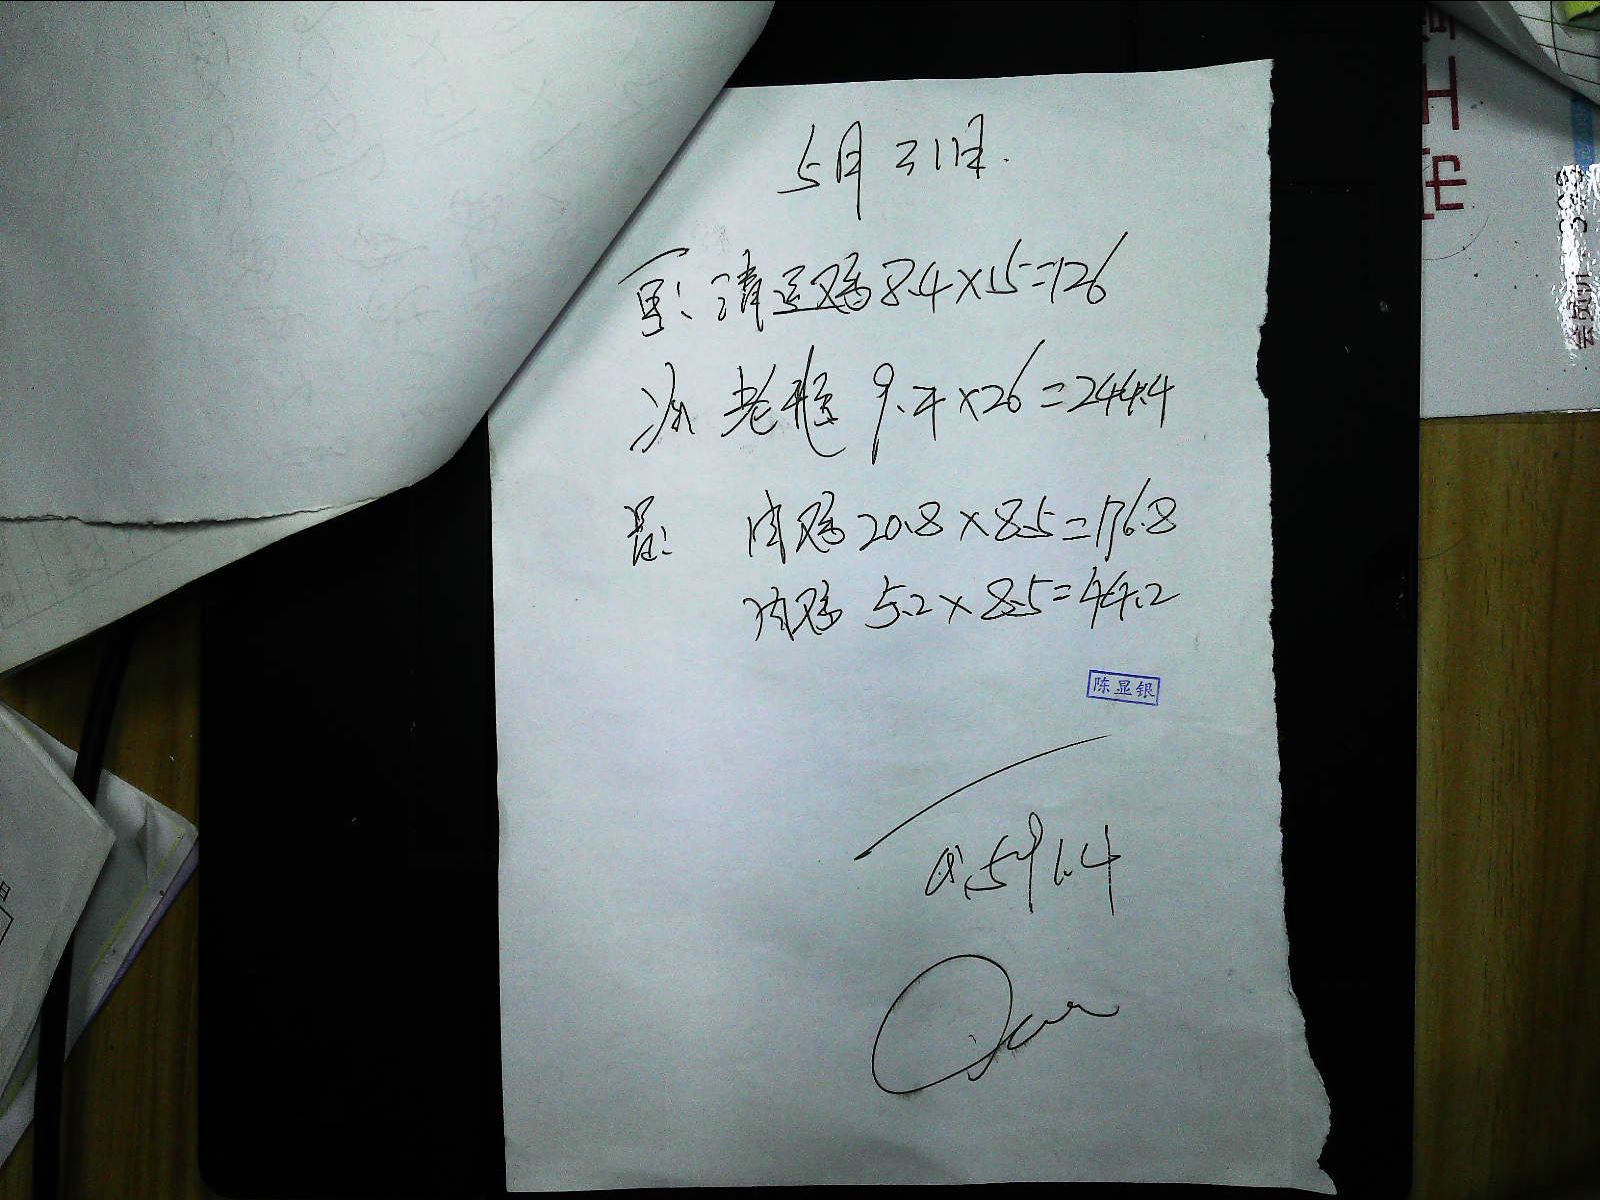 5月31日.
夏: 清远鸡 8.4×15=126
凉 老鸭 9.4×26=244.4
肉鸡 20.8×8.5=176.8
肉鸡 5.2×8.5=44.2
陈显银
591.4